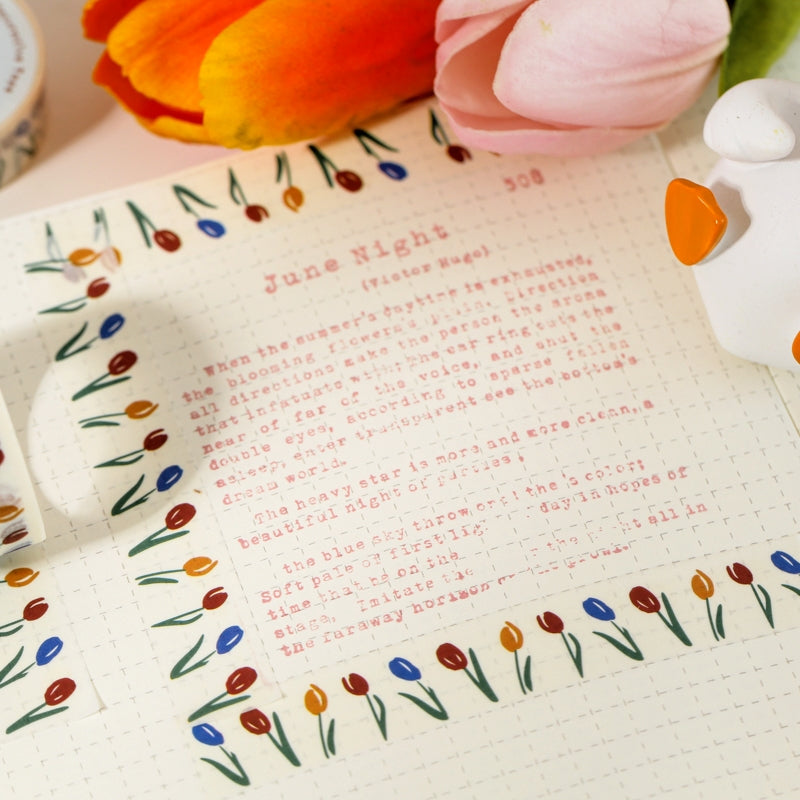 308
June Night
(Victor Hugo)
When the summer's daytime is exhausted,
the blooming flowerad plain. Direction
all directions make the person the aroma
that infatuate with; the ear ring tu's the
near of far of the voice, and shut the
double eyes, according to sparse fallen
asleep, enter transparent see the bottom's
dream world.
The heavy star is more and more clean, a
beautiful night of
the blue sky throw the's color;
Soft pale of first day in hopes of
time that he on the the all in
stage, Imitate the
the faraway horizon